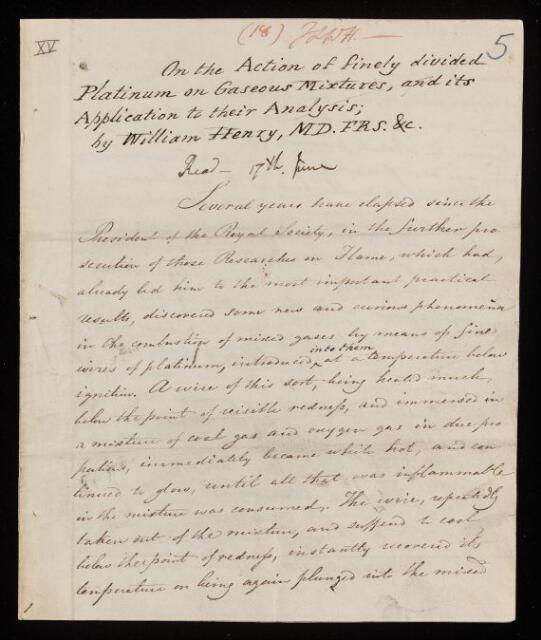 XV
(18)
5
On the Action of finely divided
Platinum on Gaseous Mixtures, and its
Application to their Analysis;
by William Henry, M.D. F.R.S. &c.
Read — 17th. June
Several years have elapsed since the
President of the Royal Society, in the further pro
secution of those Researches on Flame, which had,
already led him to the most important practical
results, discovered some new and curious phenomena
in the combustion of mixed gases, by means of fine
wires of platinum, introduced into them at a temperature below
ignition. A wire of this sort, being heated much
below the point of visible redness, and immersed in
a mixture of coal gas and oxygen gas in due pro
portions, immediately became white hot, and con
tinued to glow, until all that was inflammable
in the mixture was consumed. The wire, repeatedly
taken out of the mixture, and suffered to cool
below the point of redness, instantly recovered its
temperature on being again plunged into the mixed